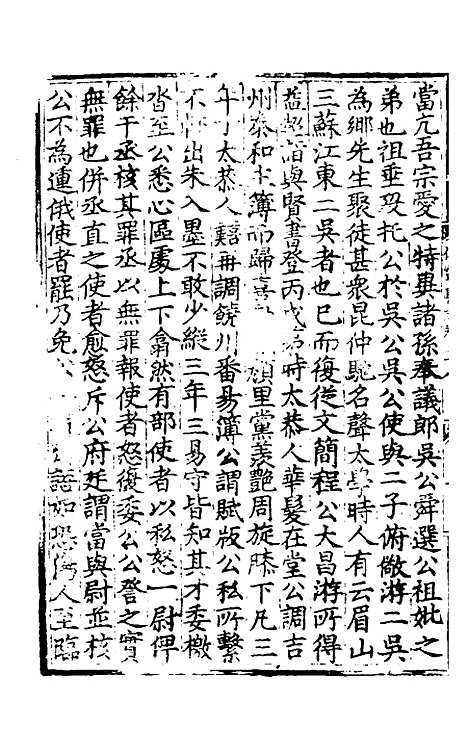 當亢吾宗愛之特異諸孫奉議郎吳公舜選公祖妣之
弟也祖垂歿托公於吳公吳公使與二子俯儆游二吳
為鄉先生聚徒甚衆昆仲馳名聲太學時人有云眉山
三蘇江東二吳者也已而復從文簡程公大昌游所得
益超詣與賢書登丙戌第時太恭人華髮在堂公調吉
州泰和主簿而歸喜 里黨羨艷周旋膝下凡三
年丁太恭人艱再調饒州番昜簿公謂賦版公私所繫
不 出朱入墨不敢少縱三年三易守皆知其才委檄
沓至公悉心區處上下翕然有部使者以私怒一尉俾
餘干丞核其罪丞以無罪報使者怒復委公公詧之實
無罪也併丞直之使者愈怒斥公府廷謂當與尉並核
公不為連俄使者罷乃免 語如 人至臨